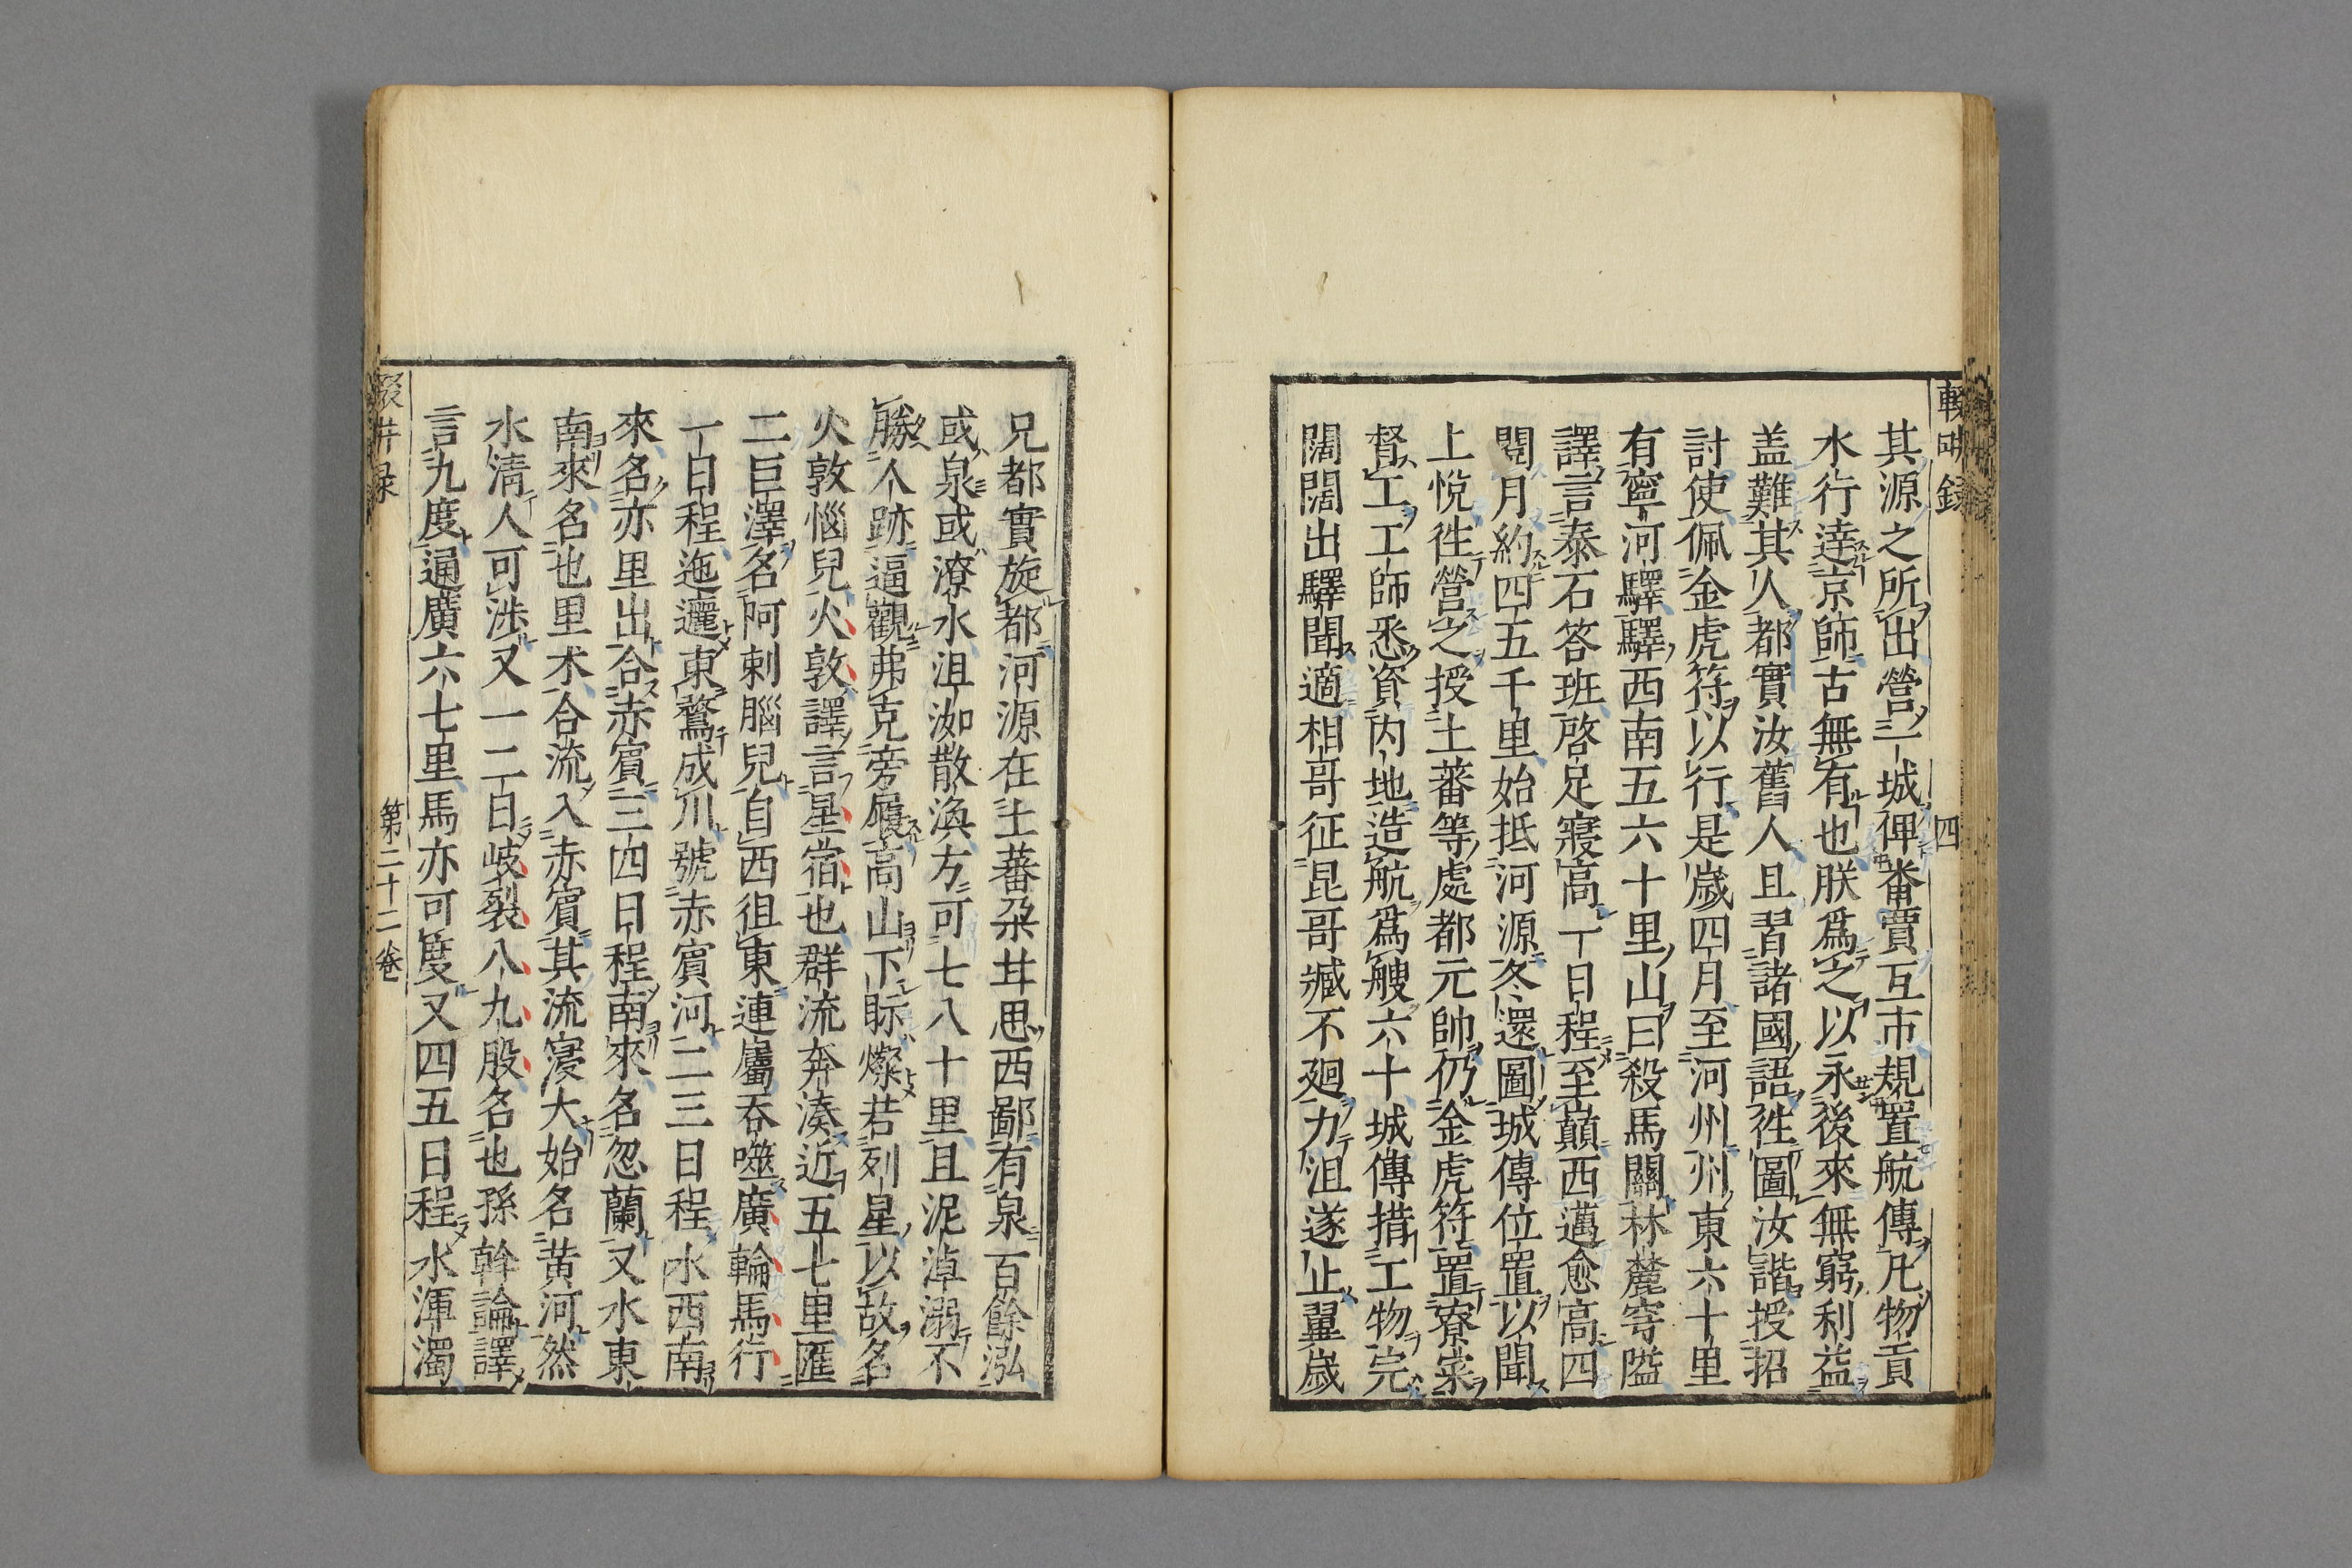 輟畊録
四
其源之所出營一城俾畨賈互市規置航傳凢物貢
水行達京師古無有也朕爲之以永後來無窮利益
盖難其人都實汝舊人且習諸國語徃圖汝諧授招
討使佩金虎符以行是歲四月至河州州東六十里
有寧河驛驛西南五六十里山曰殺馬關林麓穹隘
譯言泰石答班啓足寖高一日程至巔西邁愈高四
閲月約四五千里始抵河源冬還圖城傳位置以聞
上悅徃營之授土蕃等處都元帥仍金虎符置寮寀
督工工師悉資内地造航爲艘六十城傳措工物完
闊闊出驛聞適相哥征昆哥臧不廻力沮遂止翼歲
兄都實旋都河源在土蕃朶甘思西鄙有泉百餘泓
或泉或潦水沮洳散渙方可七八十里且泥淖溺不
勝人跡逼觀弗克旁履高山下眎燦若列星以故名
火敦惱兒火敦譯言星宿也群流奔湊近五七里匯
二巨澤名阿剌腦兒自西徂東連屬吞噬廣輪馬行
一日程迤邐東鶩成川號赤賓河二三日程水西南
來名亦里出合赤賓三四日程南來名忽蘭又水東
南來名也里术合流入赤賓其流寖大始名黄河然
水清人可渉又一二日岐裂八九股名也孫幹論譯
言九度通廣六七里馬亦可度又四五日程水渾濁
第二十二卷